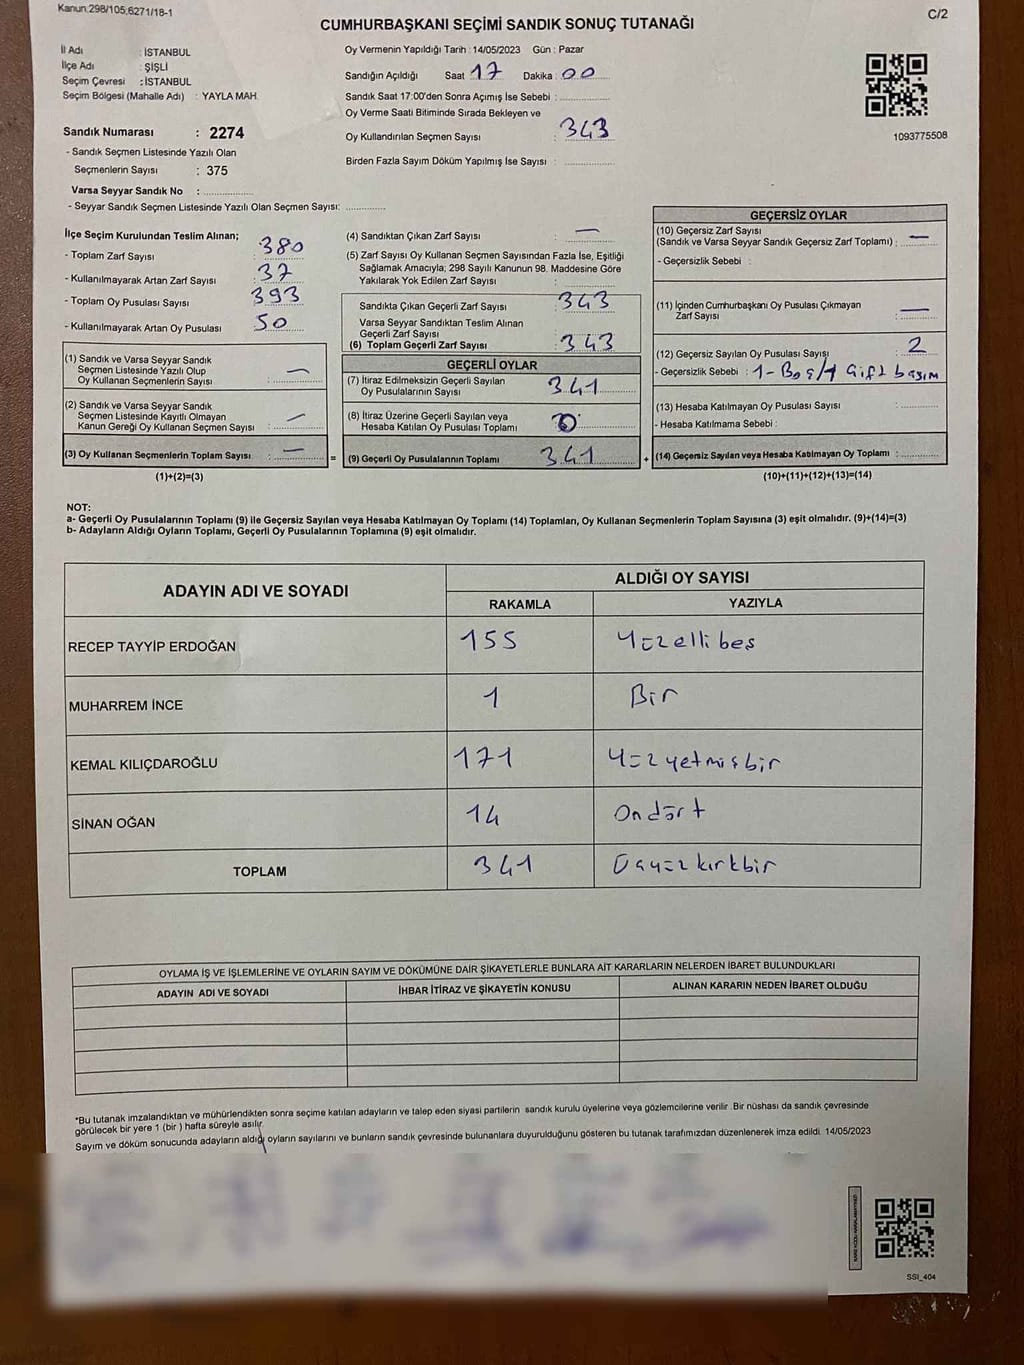 Kanun:298/105;6271/18-1
C/2
CUMHURBAŞKANI SEÇİMİ SANDIK SONUÇ TUTANAĞI
İl Adı : İSTANBUL
İlçe Adı : ŞİŞLİ
Seçim Çevresi : İSTANBUL
Seçim Bölgesi (Mahalle Adı) : YAYLA MAH.
Sandık Numarası : 2274
- Sandık Seçmen Listesinde Yazılı Olan
Seçmenlerin Sayısı : 375
Varsa Seyyar Sandık No :
- Seyyar Sandık Seçmen Listesinde Yazılı Olan Seçmen Sayısı:
Oy Vermenin Yapıldığı Tarih : 14/05/2023 Gün : Pazar
Sandığın Açıldığı Saat 17 Dakika : 00
Sandık Saat 17:00'den Sonra Açımış İse Sebebi :
Oy Verme Saati Bitiminde Sırada Bekleyen ve
Oy Kullandırılan Seçmen Sayısı : 343
Birden Fazla Sayım Döküm Yapılmış İse Sayısı :
1093775508
İlçe Seçim Kurulundan Teslim Alınan;
- Toplam Zarf Sayısı : 380
- Kullanılmayarak Artan Zarf Sayısı : 37
- Toplam Oy Pusulası Sayısı : 393
- Kullanılmayarak Artan Oy Pusulası : 50
(1) Sandık ve Varsa Seyyar Sandık
Seçmen Listesinde Yazılı Olup
Oy Kullanan Seçmenlerin Sayısı : —
(2) Sandık ve Varsa Seyyar Sandık
Seçmen Listesinde Kayıtlı Olmayan
Kanun Gereği Oy Kullanan Seçmen Sayısı : —
(3) Oy Kullanan Seçmenlerin Toplam Sayısı : —
(1)+(2)=(3)
(4) Sandıktan Çıkan Zarf Sayısı : —
(5) Zarf Sayısı Oy Kullanan Seçmen Sayısından Fazla İse, Eşitliği
Sağlamak Amacıyla; 298 Sayılı Kanunun 98. Maddesine Göre
Yakılarak Yok Edilen Zarf Sayısı :
Sandıkta Çıkan Geçerli Zarf Sayısı : 343
Varsa Seyyar Sandıktan Teslim Alınan
Geçerli Zarf Sayısı :
(6) Toplam Geçerli Zarf Sayısı : 343
GEÇERLİ OYLAR
(7) İtiraz Edilmeksizin Geçerli Sayılan
Oy Pusulalarının Sayısı : 341
(8) İtiraz Üzerine Geçerli Sayılan veya
Hesaba Katılan Oy Pusulası Toplamı : 0
= (9) Geçerli Oy Pusulalarının Toplamı 341 +
GEÇERSİZ OYLAR
(10) Geçersiz Zarf Sayısı
(Sandık ve Varsa Seyyar Sandık Geçersiz Zarf Toplamı) : —
- Geçersizlik Sebebi :
(11) İçinden Cumhurbaşkanı Oy Pusulası Çıkmayan
Zarf Sayısı : —
(12) Geçersiz Sayılan Oy Pusulası Sayısı : 2
- Geçersizlik Sebebi : 1-Boş/1 Çift basım
(13) Hesaba Katılmayan Oy Pusulası Sayısı :
- Hesaba Katılmama Sebebi :
(14) Geçersiz Sayılan veya Hesaba Katılmayan Oy Toplamı :
(10)+(11)+(12)+(13)=(14)
NOT:
a- Geçerli Oy Pusulalarının Toplamı (9) ile Geçersiz Sayılan veya Hesaba Katılmayan Oy Toplamı (14) Toplamları, Oy Kullanan Seçmenlerin Toplam Sayısına (3) eşit olmalıdır. (9)+(14)=(3)
b- Adayların Aldığı Oyların Toplamı, Geçerli Oy Pusulalarının Toplamına (9) eşit olmalıdır.
ADAYIN ADI VE SOYADI ALDIĞI OY SAYISI
RAKAMLA YAZIYLA
RECEP TAYYİP ERDOĞAN 155 Yüzellibeş
MUHARREM İNCE 1 Bir
KEMAL KILIÇDAROĞLU 171 Yüzyetmişbir
SİNAN OĞAN 14 Ondört
TOPLAM 341 Üçyüzkırkbir
OYLAMA İŞ VE İŞLEMLERİNE VE OYLARIN SAYIM VE DÖKÜMÜNE DAİR ŞİKAYETLERLE BUNLARA AİT KARARLARIN NELERDEN İBARET BULUNDUKLARI
ADAYIN ADI VE SOYADI İHBAR İTİRAZ VE ŞİKAYETİN KONUSU ALINAN KARARIN NEDEN İBARET OLDUĞU
*Bu tutanak imzalandıktan ve mühürlendikten sonra seçime katılan adayların ve talep eden siyasi partilerin sandık kurulu üyelerine veya gözlemcilerine verilir. Bir nüshası da sandık çevresinde
görülecek bir yere 1 (bir ) hafta süreyle asılır.
Sayım ve döküm sonucunda adayların aldığı oyların sayılarını ve bunların sandık çevresinde bulunanlara duyurulduğunu gösteren bu tutanak tarafımızdan düzenlenerek imza edildi. 14/05/2023
SSI_404